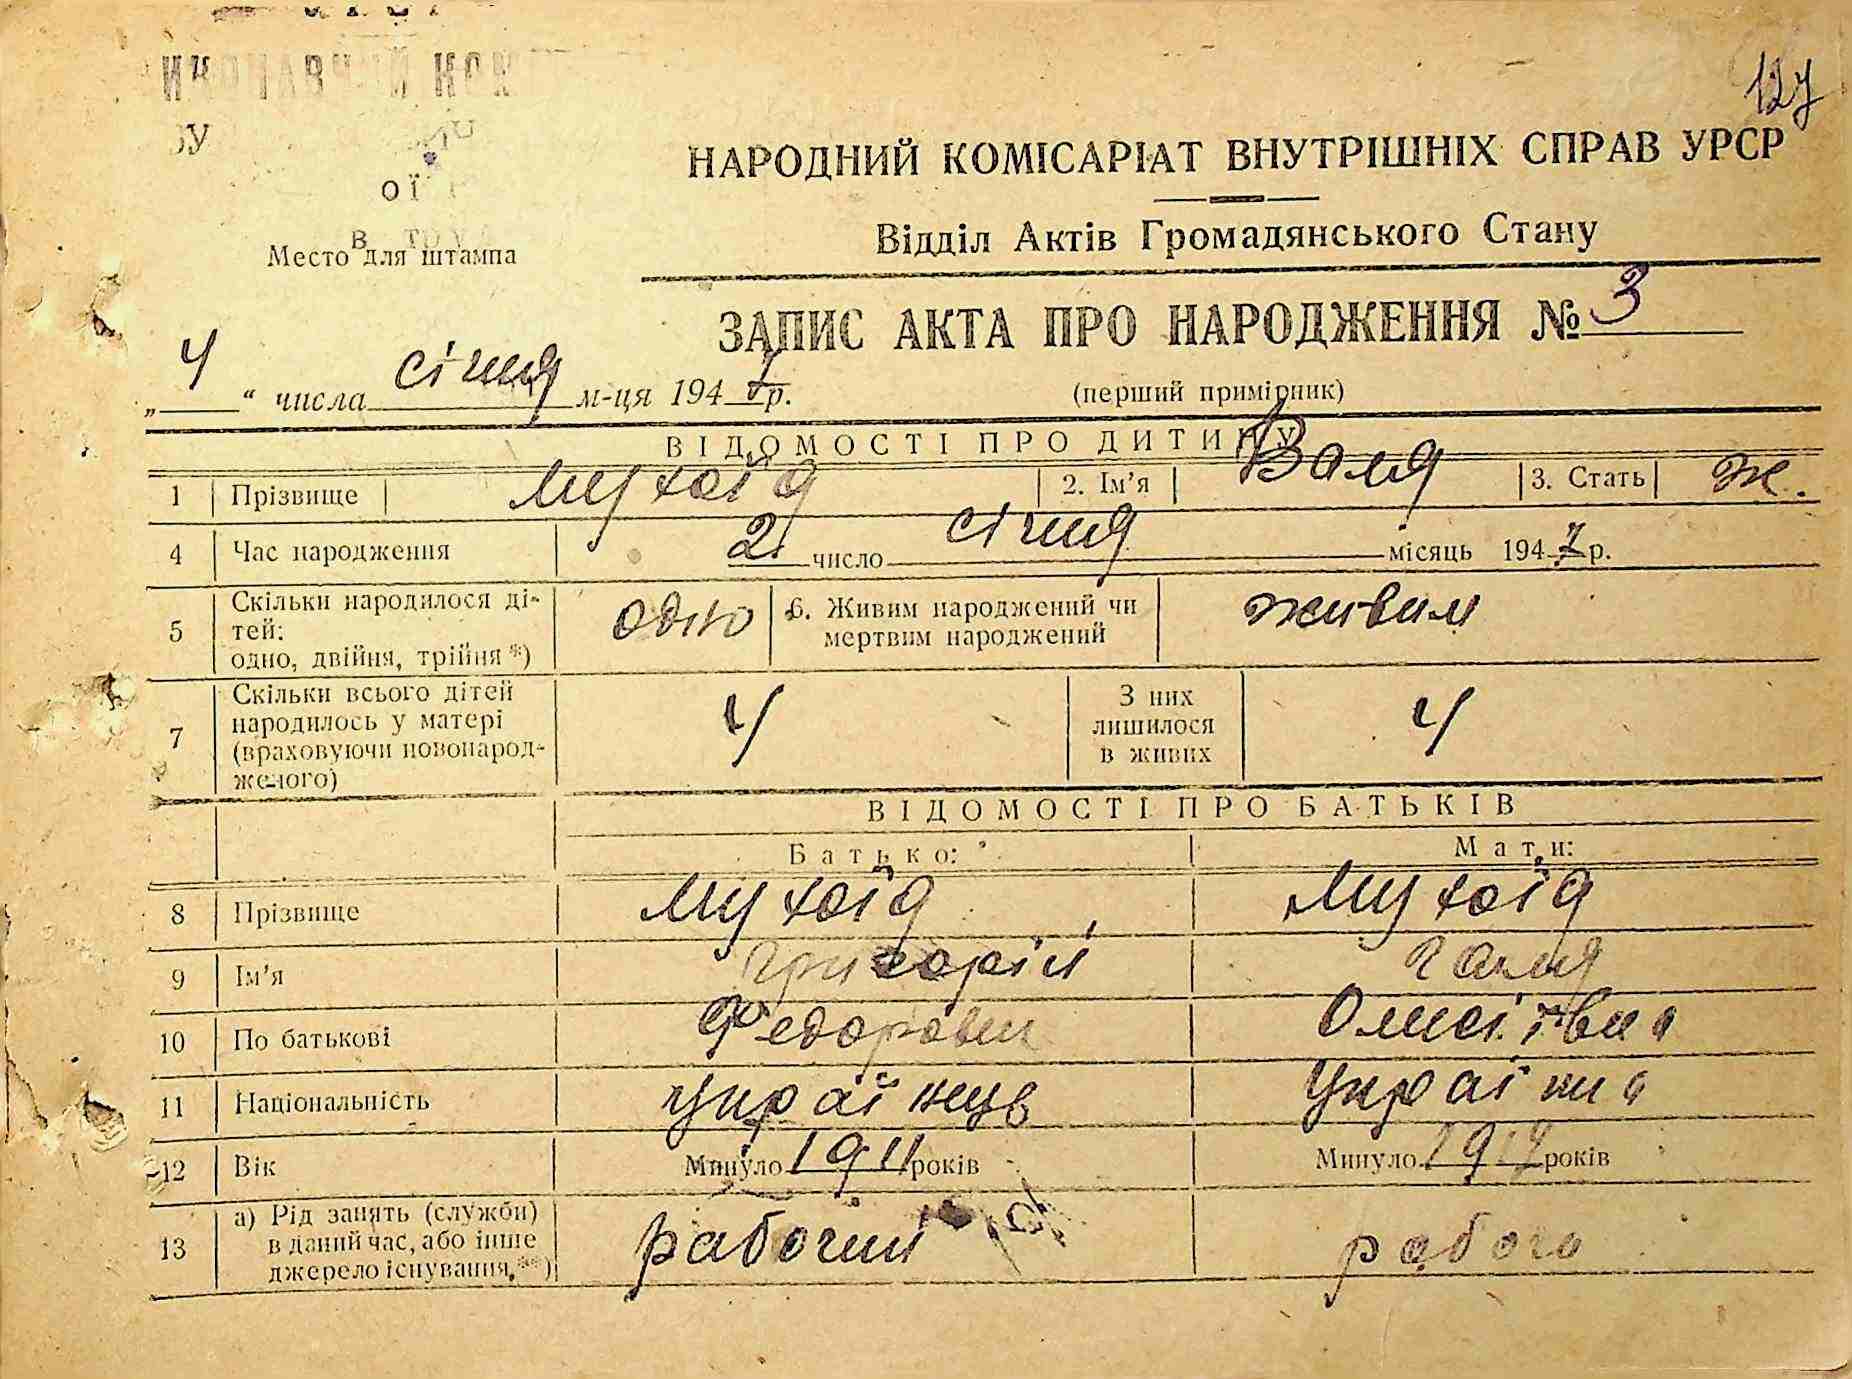 127
НАРОДНИЙ КОМІСАРІАТ ВНУТРІШНІХ СПРАВ УРСР
Відділ Актів Громадянського Стану
Место для штампа
ЗАПИС АКТА ПРО НАРОДЖЕННЯ № 3
„ 4 “ числа січня м-ця 1947 р.
(перший примірник)
ВІДОМОСТІ ПРО ДИТИНУ
1 Прізвище Мухоїд 2. Ім’я Валя 3. Стать ж.
4 Час народження 2 число січня місяць 1947 р.
5 Скільки народилося ді-
тей:
одно, двійня, трійня *) одно 6. Живим народжений чи
мертвим народжений живим
7 Скільки всього дітей
народилось у матері
(враховуючи новонарод-
женого) 4 З них
лишилося
в живих 4
ВІДОМОСТІ ПРО БАТЬКІВ
Батько: Мати:
8 Прізвище Мухоїд Мухоїд
9 Ім’я Григорій Галя
10 По батькові Федорович
11 Національність Українець Українка
12 Вік Минуло 1911 років Минуло 1917 років
13 а) Рід занять (служби)
в даний час, або інше
джерело існування **) рабочий